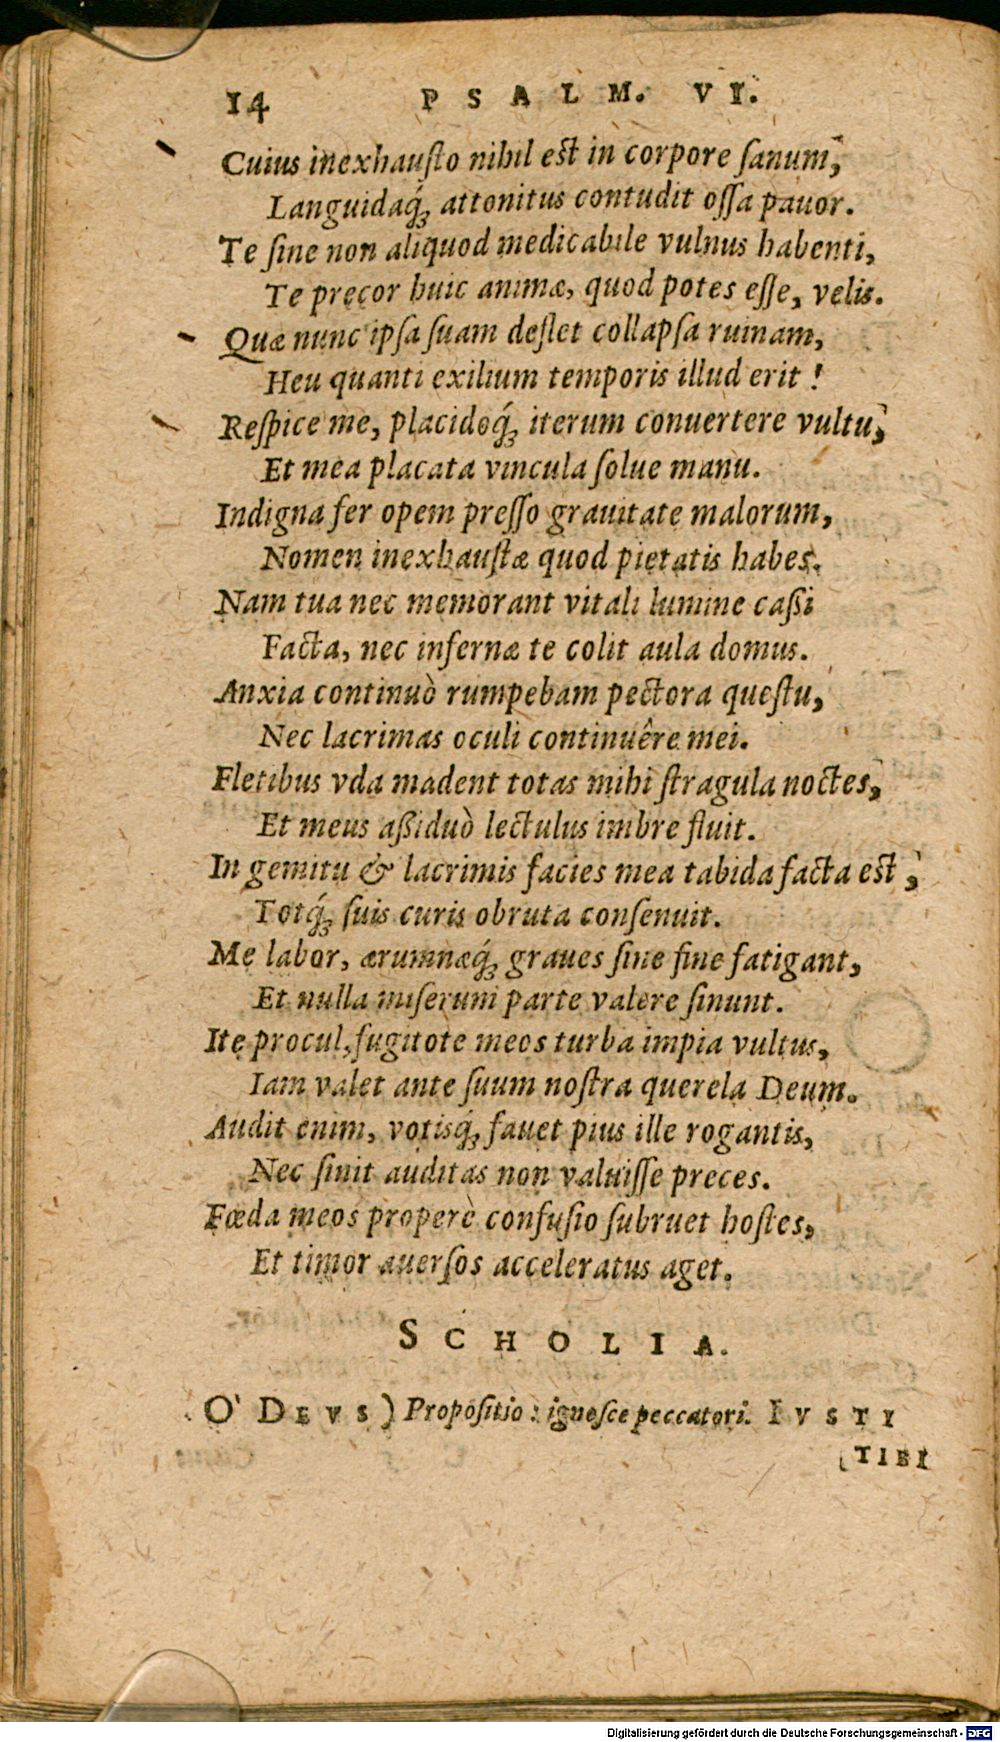 14 PSALM. VI.
Cuius inexhausto nihil est in corpore sanum,
Languidaq́; attonitus contudit ossa pauor.
Te sine non aliquod medicabile vulnus habenti,
Te precor huic animæ, quod potes esse, velis.
Quæ nunc ipsa suam deflet collapsa ruinam,
Heu quanti exilium temporis illud erit!
Respice me, placidoq́; iterum conuertere vultu,
Et mea placata vincula solue manu.
Indigna fer opem presso grauitate malorum,
Nomen inexhaustæ quod pietatis habes.
Nam tua nec memorant vitali lumine cassi
Facta, nec infernæ te colit aula domus.
Anxia continuò rumpebam pectora questu,
Nec lacrimas oculi continuêre mei.
Fletibus vda madent totas mihi stragula noctes,
Et meus assiduò lectulus imbre fluit.
In gemitu & lacrimis facies mea tabida facta est,
Totq́; suis curis obruta consenuit.
Me labor, ærumnæq́; graues sine fine fatigant,
Et nulla miserum parte valere sinunt.
Ite procul, fugitote meos turba impia vultus,
Iam valet ante suum nostra querela Deum.
Audit enim, votisq́; fauet pius ille rogantis,
Nec sinit auditas non valuisse preces.
Fœda meos properè confusio subruet hostes,
Et timor auersos acceleratus aget.
SCHOLIA.
O' DEVS) Propositio: ignosce peccatori. IVSTI
(TIBI
Digitalisierung gefördert durch die Deutsche Forschungsgemeinschaft - DFG